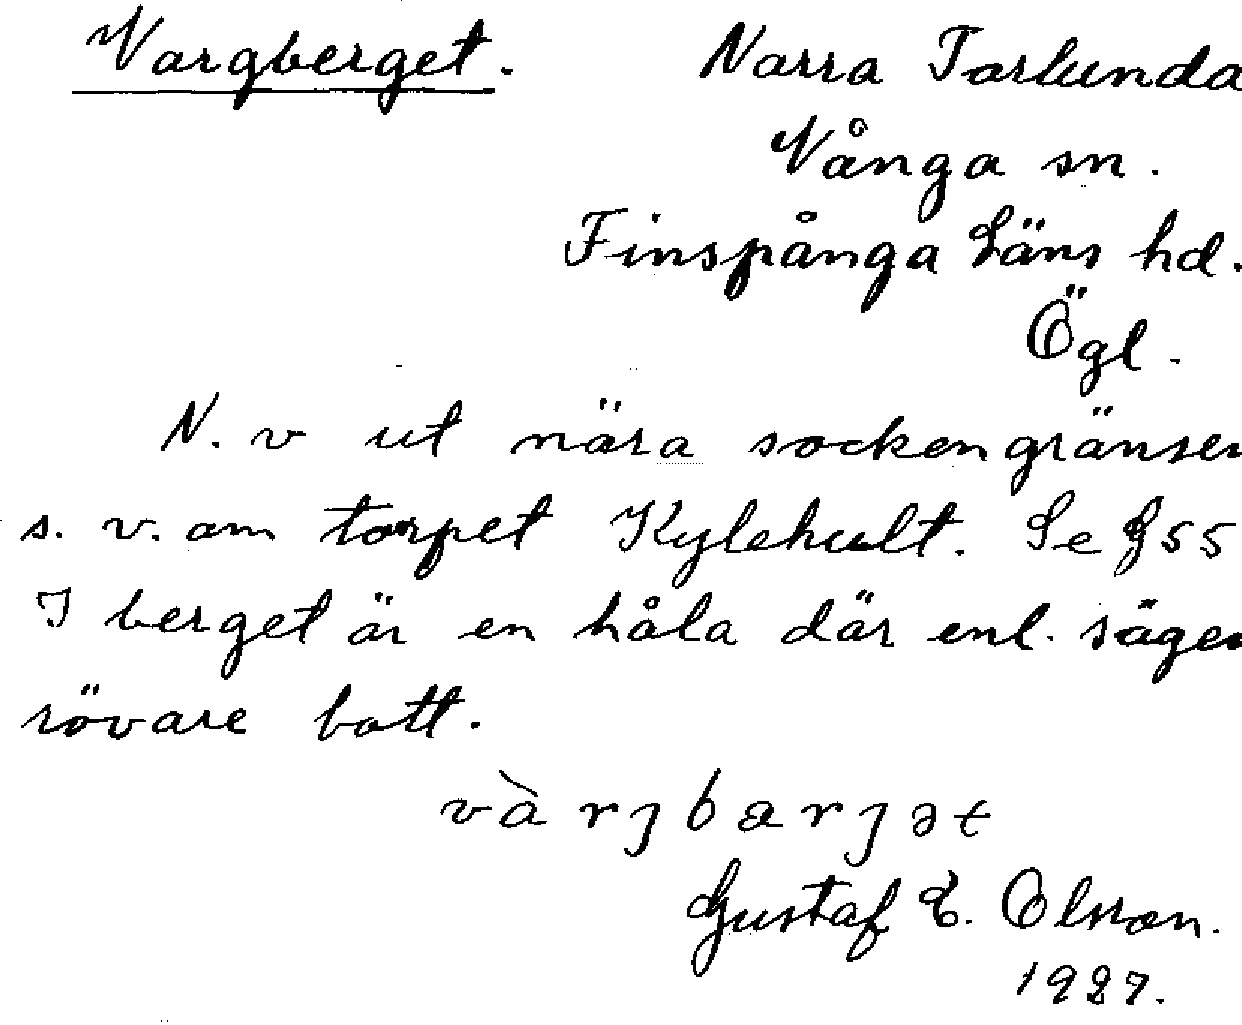 Vargberget. Norra Torlunda
Vånga sn.
Finspånga Läns hd.
Ögl.
N. v ut nära sockengränsen
s. v. om torpet Kylehult. Se § 55
I berget är en håla där enl. sägen
rövare bott.
và rj b æ r j ə t
Gustaf E. Olsson.
1927.